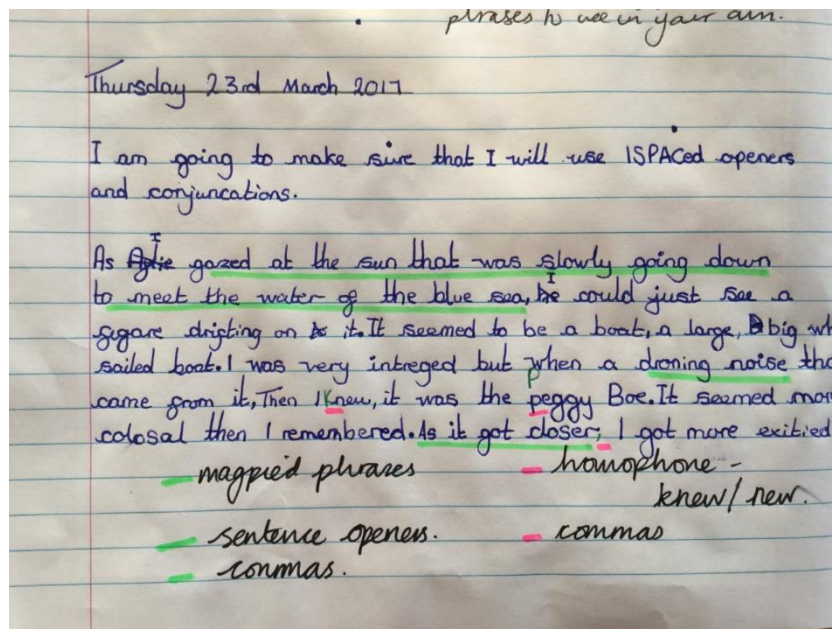 phrases to use in your own.
Thursday 23rd March 2017
I am going to make sure that I will use ISPACed openers
and conjuncations.
As I gazed at the sun that was slowly going down
to meet the water of the blue sea, I could just see a
figare drifting on it. It seemed to be a boat, a large, big wh
sailed boat. I was very intreged but when a droning noise tha
came from it, Then I Knew, it was the peggy Boe. It seemed mor
colosal then I remembered. As it got closer, I got more exitied
magpie'd phrases
homophone -
knew/new.
sentence openers.
commas
commas.